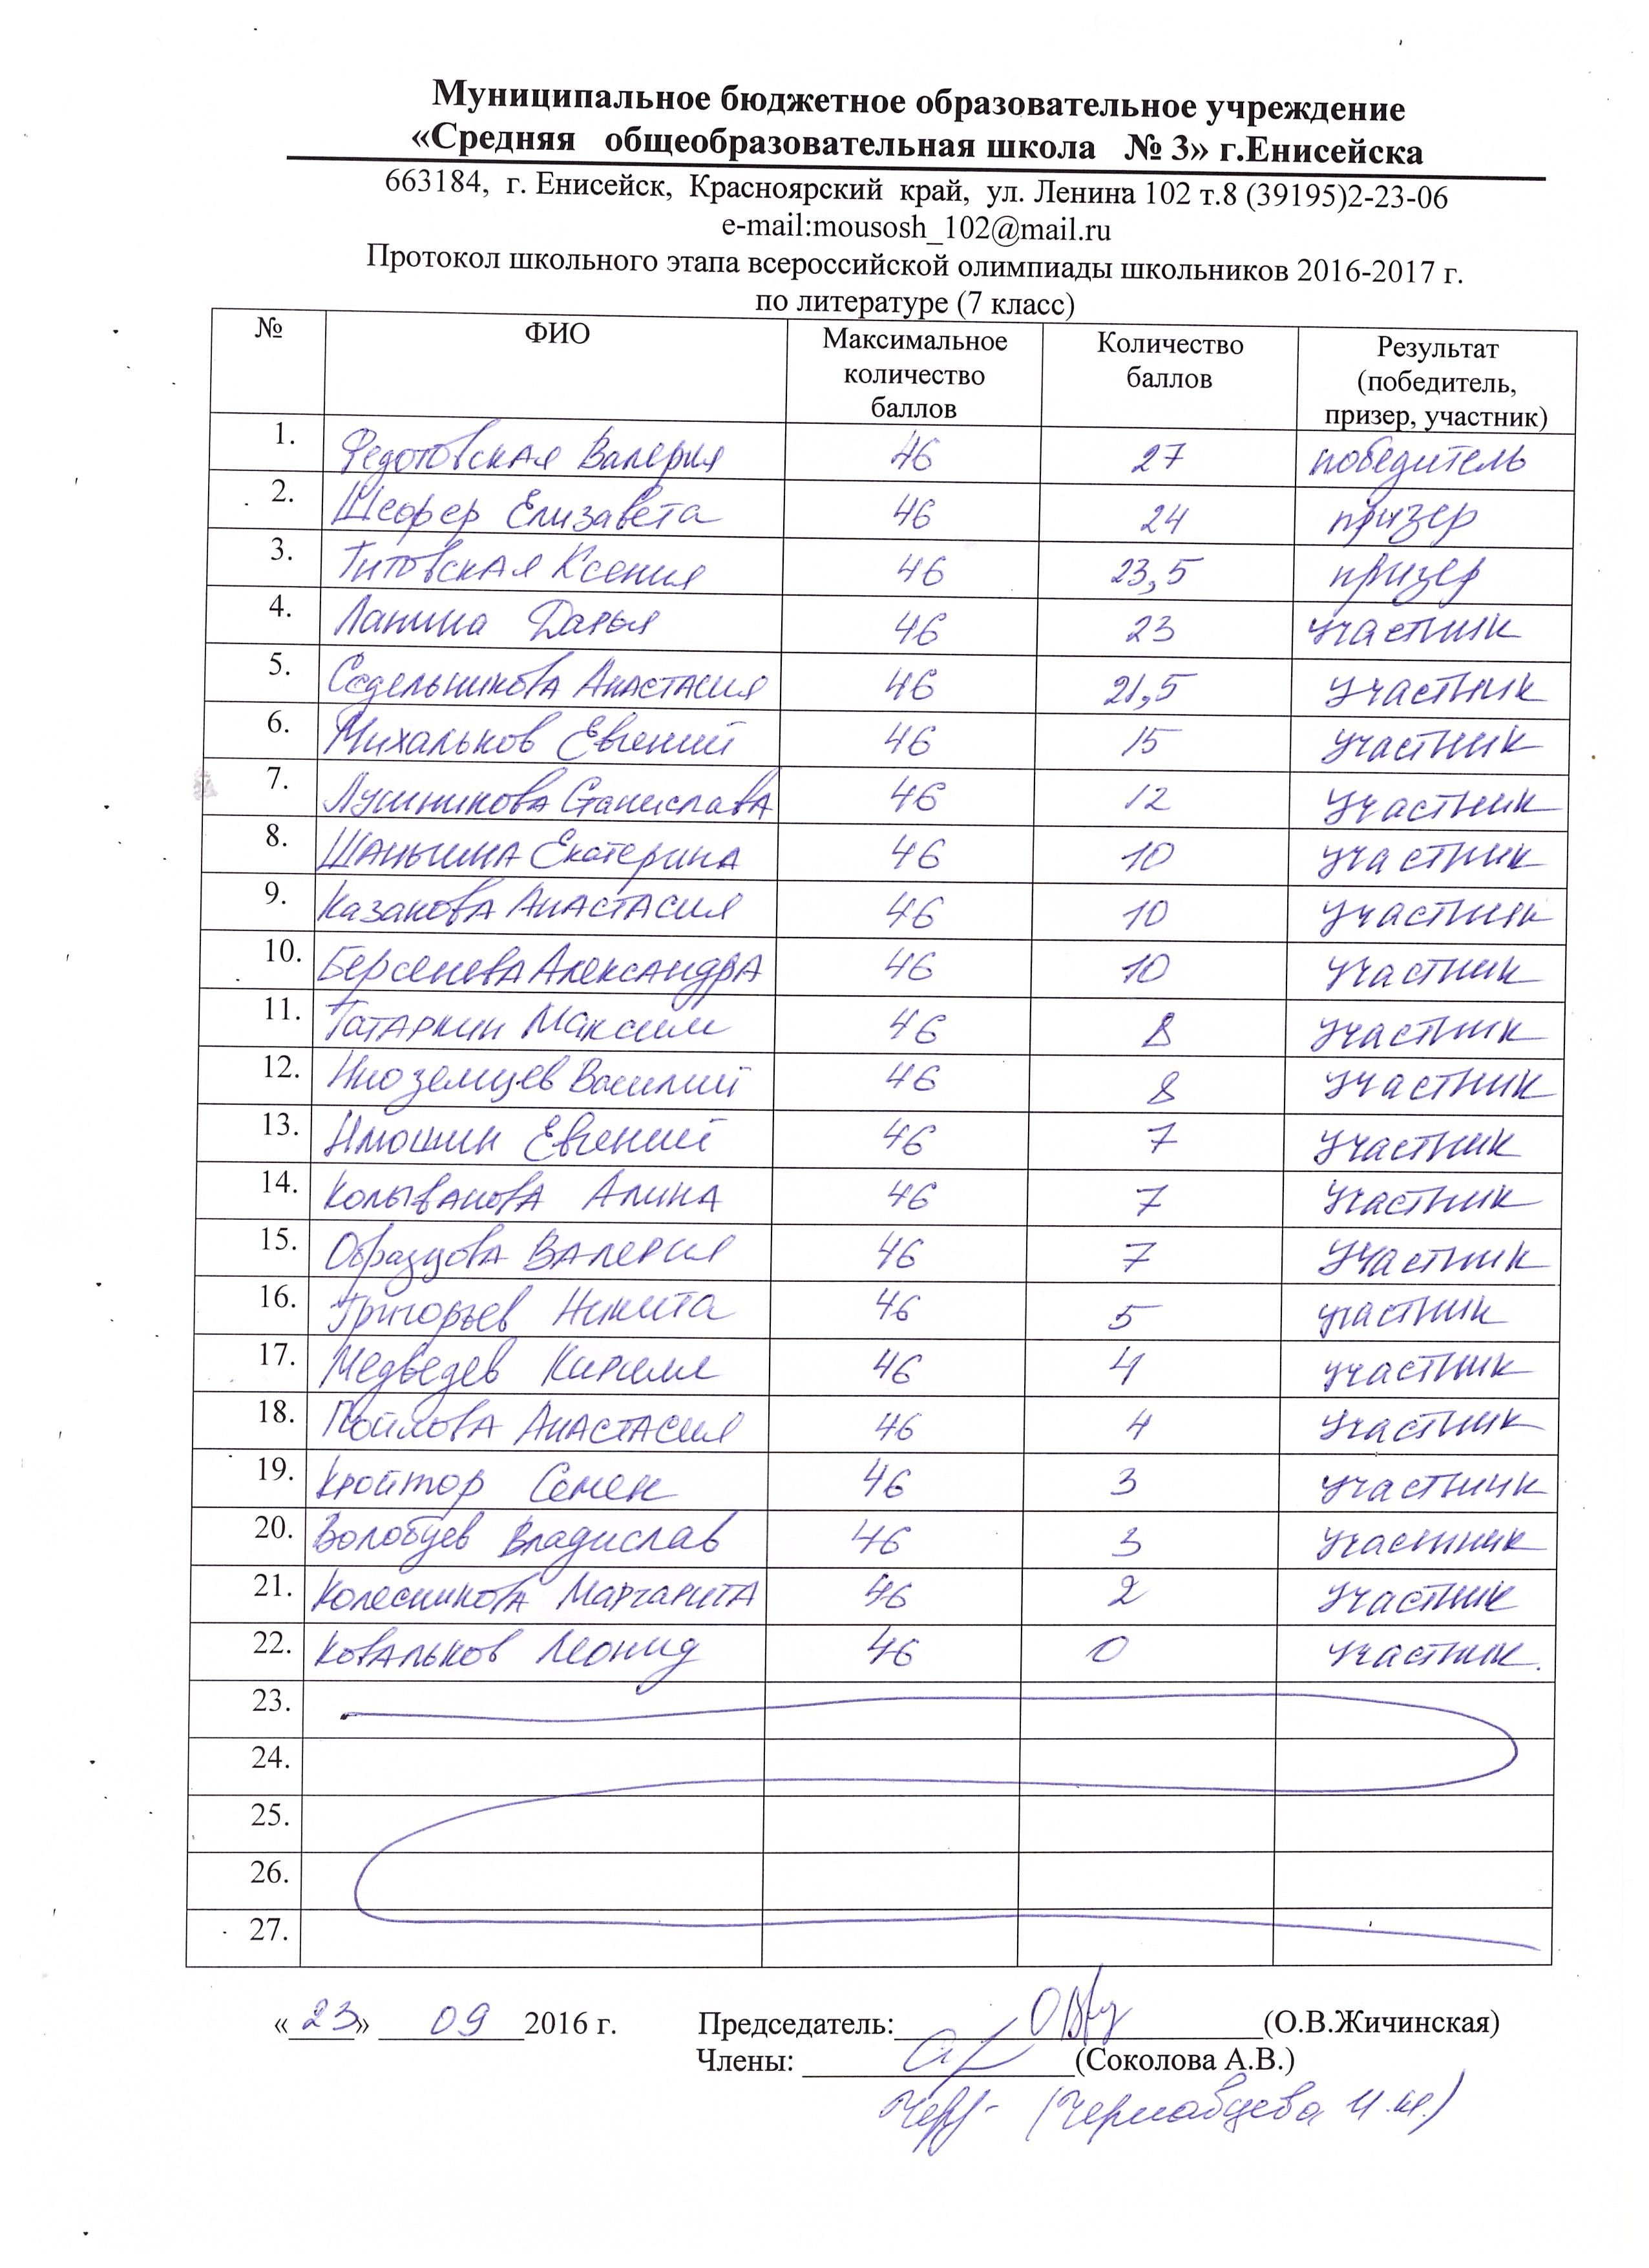 Муниципальное бюджетное образовательное учреждение
«Средняя общеобразовательная школа № 3» г.Енисейска
663184, г. Енисейск, Красноярский край, ул. Ленина 102 т.8 (39195)2-23-06
e-mail:mousosh_102@mail.ru
Протокол школьного этапа всероссийской олимпиады школьников 2016-2017 г.
по литературе (7 класс)
№ ФИО Максимальное количество баллов Количество баллов Результат (победитель, призер, участник)
1. Федотовская Валерия 46 27 победитель
2. Шефер Елизавета 46 24 призер
3. Титовская Ксения 46 23,5 призер
4. Лапина Дарья 46 23 участник
5. Седельникова Анастасия 46 21,5 участник
6. Михальков Евгений 46 15 участник
7. Лушникова Станислава 46 12 участник
8. Шаньшина Екатерина 46 10 участник
9. Казакова Анастасия 46 10 участник
10. Берсенева Александра 46 10 участник
11. Татаркин Максим 46 8 участник
12. Иноземцев Василий 46 8 участник
13. Илюшин Евгений 46 7 участник
14. Колыванова Алина 46 7 участник
15. Образцова Валерия 46 7 участник
16. Григорьев Никита 46 5 участник
17. Медведев Кирилл 46 4 участник
18. Пойлова Анастасия 46 4 участник
19. Кройтор Семен 46 3 участник
20. Волобуев Владислав 46 3 участник
21. Колесникова Маргарита 46 2 участник
22. Ковальков Леонид 46 0 участник.
23.
24.
25.
26.
27.
«23» 09 2016 г. Председатель: (О.В.Жичинская)
Члены: (Соколова А.В.)
(Чернавцева И.М.)